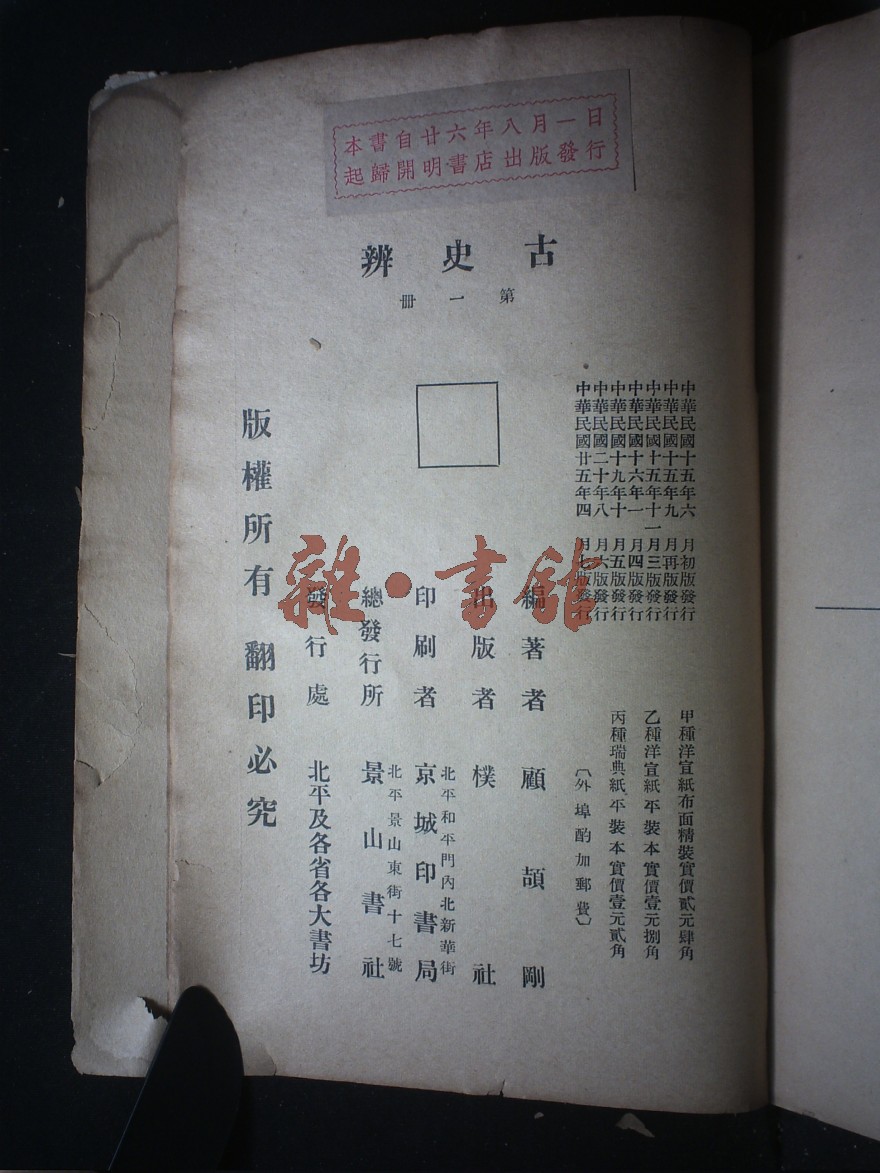 本書自廿六年八月一日
起歸開明書店出版發行
古史辨
第一冊
中華民國十五年六月初版發行
中華民國十五年九月再版發行
中華民國十五年十一月三版發行
中華民國十六年一月四版發行
中華民國十九年十月五版發行
中華民國二十年八月六版發行
中華民國廿五年四月七版發行
甲種洋宣紙布面精裝實價貳元肆角
乙種洋宣紙平裝本實價壹元捌角
丙種瑞典紙平裝本實價壹元貳角
(外埠酌加郵費)
編著者 顧頡剛
出版者 樸社
北平和平門內北新華街
印刷者 京城印書局
北平景山東街十七號
總發行所 景山書社
發行處 北平及各省各大書坊
版權所有 翻印必究
雜·書館